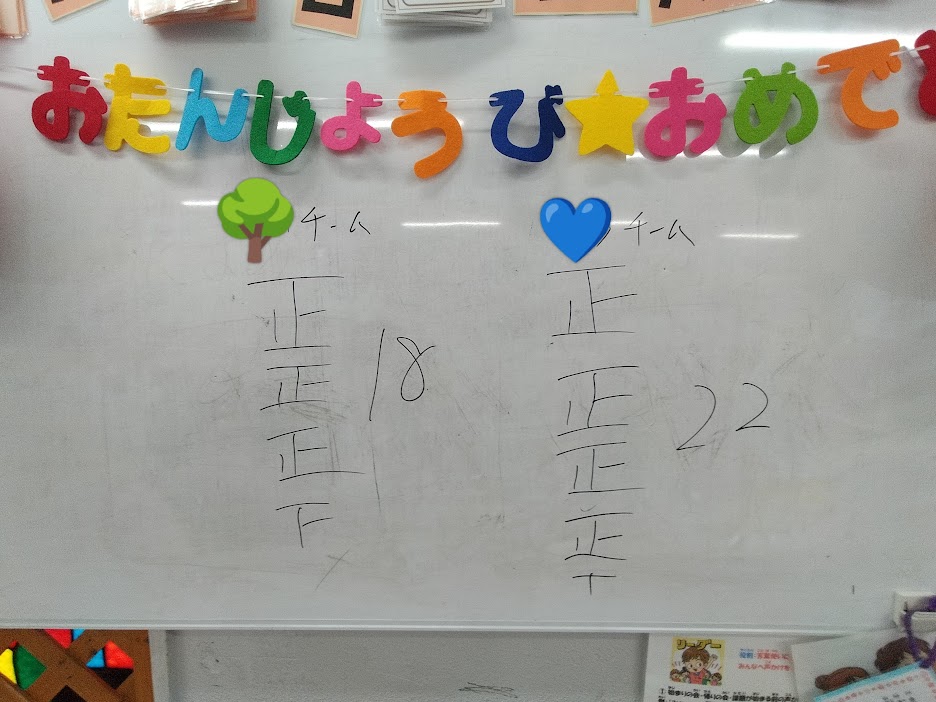 おたんじょうび★おめで
チーム チーム
正 正
正 正
正 正
下 正
丅
18 22
リーダー